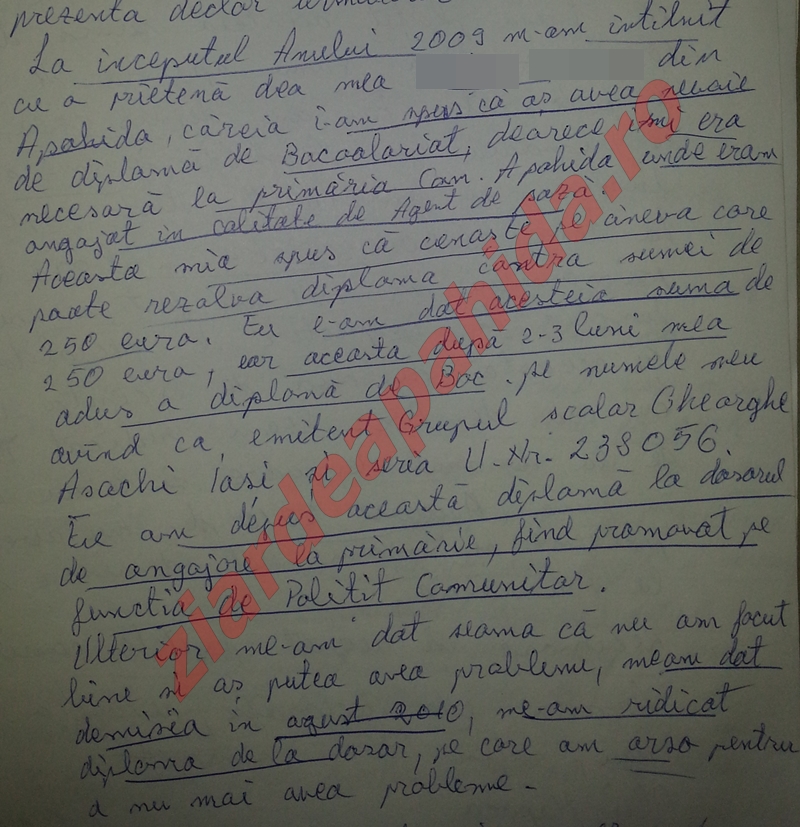 prezenta declar
La inceputul Anului 2009 m-am intilnit
cu a prietenă dea mea din
Apahida, căreia i-am spus că aș avea nevoie
de diplamă de Bacoalariat, deoarece imi era
necesară la primăria Com. Apahida unde eram
angajat in calitate de Agent de paza.
Aceasta mia spus că cenaste pe cineva care
poate rezalva diplama cantra sumei de
250 eura. Eu e-am dat acesteia suma de
250 eura, ear aceasta după 2-3 luni mea
adus a diplamă de Bac. pe numele meu
avind ca, emitent Grupul scalar Gheorghe
Asachi Iasi și seria U.Nr. 238056.
Eu am depus această diplamă la dosarul
de angajare la primărie, find promovat pe
functia de Politit Camunitar.
Ulterior me-am dat seama că nu am facut
bine si aș putea avea probleme, meam dat
demisia in agust 2010, me-am ridicat
diplama de la dosar, pe care am arso pentru
a nu mai avea probleme.
ziardeapahida.ro